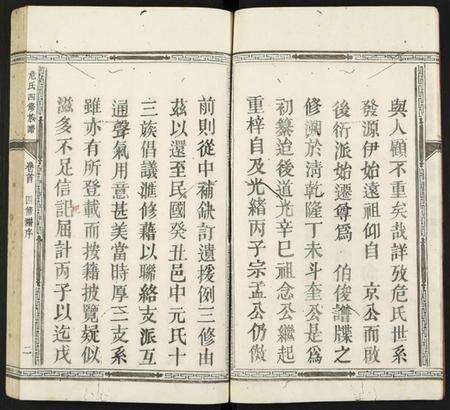 與人顧不重矣哉詳攷危氏世系
發源伊始遠祖仰自 京公而啟
後衍派始遷尊爲 伯俊譜牒之
修濶於淸乾隆丁未斗奎公是爲
初纂迨後道光辛巳祖念公繼起
重梓自及光緒丙子宗孟公仍倣
前則從中補缺訂遺援例三修由
茲以還至民國癸丑邑中元氏十
三族倡議滙修藉以聯絡支派互
通聲氣用意甚美當時厚二支系
雖亦有所登載而按籍披覽疑似
滋多不足信記屈計丙子以迄戊
危氏四修族譜 卷首 四修譜序 一